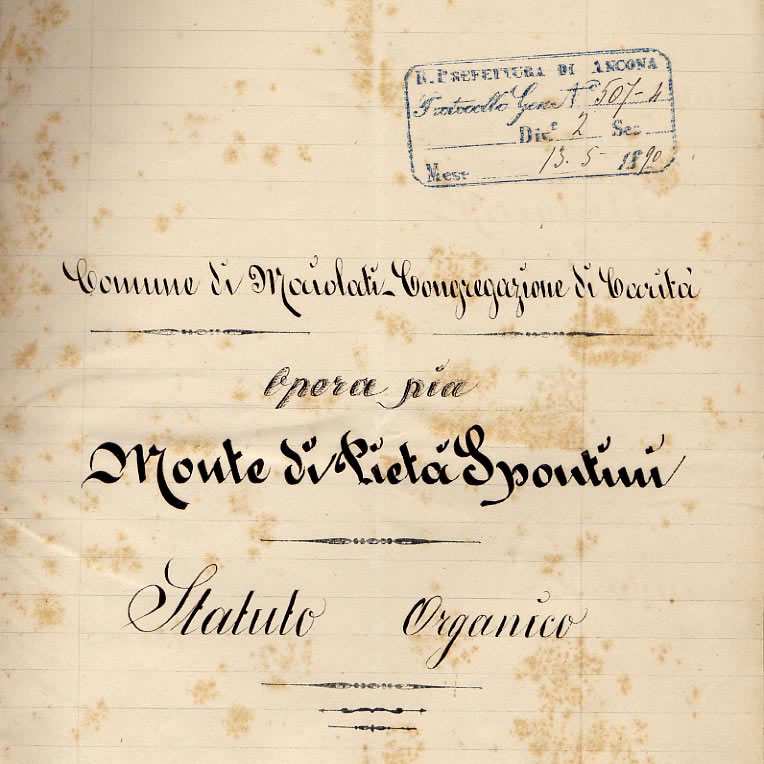 R. PREFETTURA DI ANCONA
Protocollo Gen. N° 507-4
Dic.e 2 Sez
Mese 13.5 1890
Comune di Maiolati-Congregazione di Carità
Opera pia
Monte di Pietà Spontini
Statuto Organico